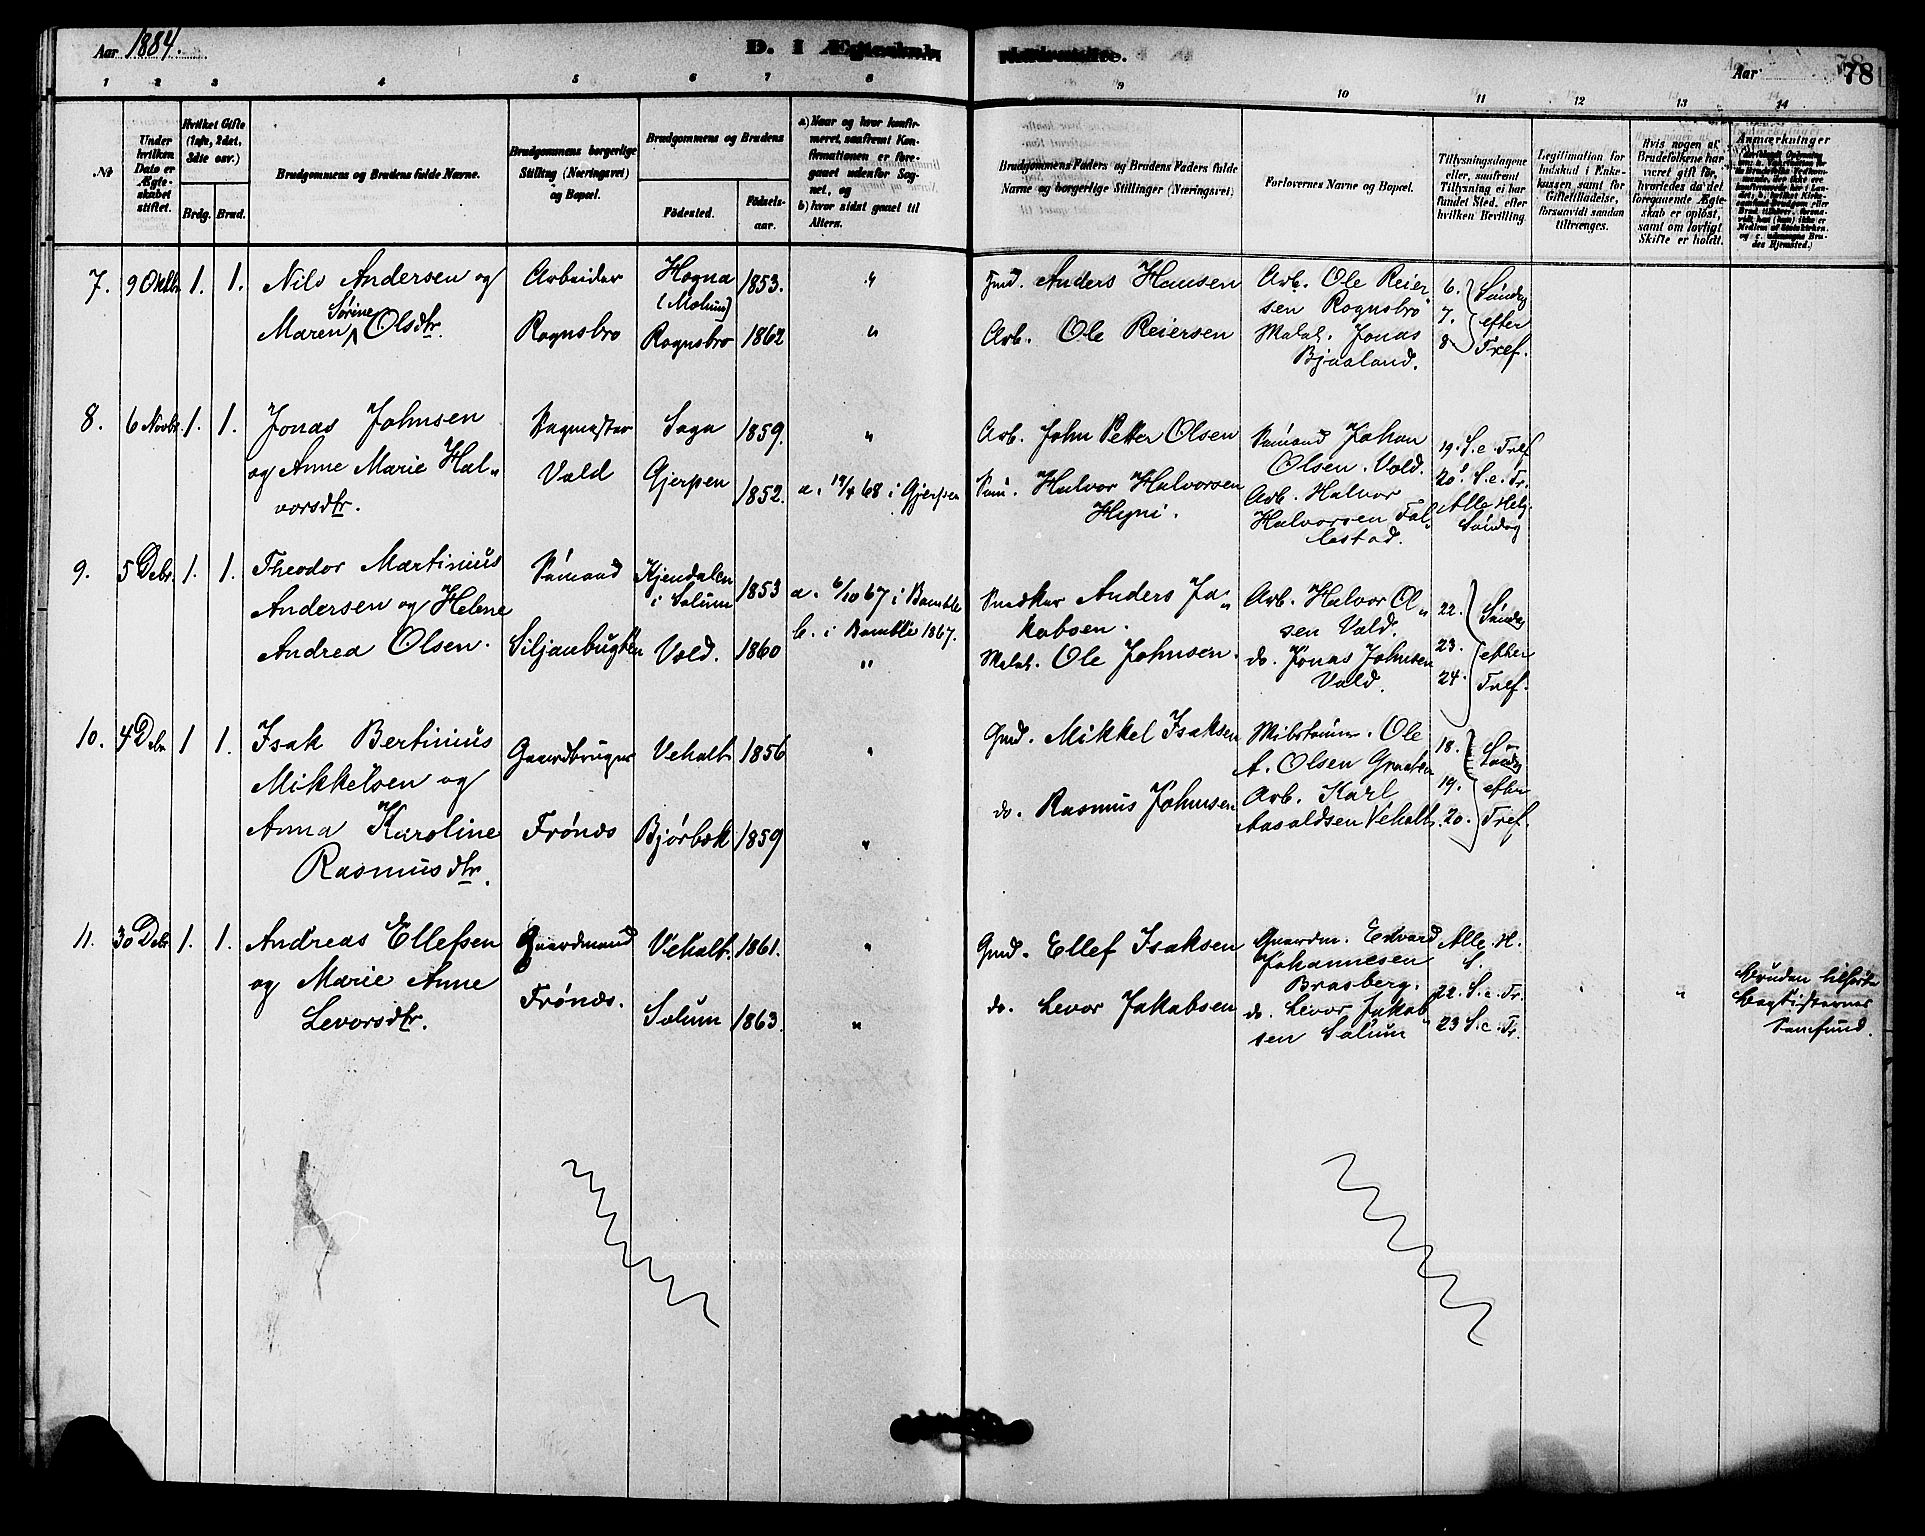 Aar 1884.
D. I Ægteskab
Aar
78
1 2 3 4 5 6 7 8 9 10 11 12 13 14
No
Under hvilken Dato er Ægteskabet stiftet.
Hvilket Gifte (1ste, 2det, 3die osv.)
Brdg. Brud.
Brudgommens og Brudens fulde Navne.
Brudgommens borgerlige Stilling (Næringsvei) og Bopæl.
Brudgommens og Brudens
Födested.
Födselsaar.
a) Naar og hvor konfirmeret, saafremt Konfirmationen er foregaaet udenfor Sognet, og
b) hvor sidst gaaet til Alters.
Brudgommens Faders og Brudens Faders fulde Navne og borgerlige Stillinger (Næringsvei)
Forlovernes Navne og Bopæl.
Tillysningsdagene eller, saafremt Tillysning ei har fundet Sted, efter hvilken Bevilling.
Legitimation for Indskud i Enkekassen samt for Giftetilladelse, forsaavidt saadan tiltrænges.
Hvis nogen af Brudefolkene har været gift för, hvorledes da det foregaaende Ægteskab er oplöst, samt om lovligt Skifte er holdt.
Anmærkninger
7. 9 Oktbr 1. 1. Nils Andersen og Arbeider Hogna 1853. " Gmd. Anders Hansen Arb. Ole Reier
[Molum] sen Rognsbro 6. Søndag
Sørine
Maren Olsdtr. Rognsbro Rognsbro 1862 " Arb. Ole Reiersen Matat. Jonas 7. efter
Bjaaland. 8 Tref.
8. 6 Novbr. 1. 1. Jonas Johnsen Saga 1859. " Arb. John Petter Olsen Sømand Johan 19. S. e. Tref
og Anne Marie Hal- Vald Gjerpen 1852. a. 68 i Gjerpen Søm. Halvor Halvorsen Olsen. Vold. 20. S. e. Tr.
vorsdtr. Arb. Halvor Alle Helg.
Halvorsen Fal- Søndag
lestad.
9. 5 Debr. 1. 1. Theodor Martinius Sømand Kjendalen 1853 a. 6/10 67 i Bamble Snedker Anders Ja- Arb. Halvor Ol- 22. Søndag
i Solum
Andersen og Helene b. i Bamble 1867. kobsen. sen Vald. 23. efter
Andrea Olsen. Siljanbugten Vold. 1860 " Matat. Ole Johnsen. do. Jonas Johnsen 24. Tref.
Vald.
10. 4 Debr 1 1. Isak Bertinius Gaardbruger Vehalt 1856 " Gmd. Mikkel Isaksen Ole 18. Søndag
Mikkelsen og A. Olsen
Anna Karoline Frønæs Bjørbæk 1859 " do. Rasmus Johnsen Arb. Karl 19. efter
Aasoldsen Vehalt. 20. Tref.
Rasmusdtr.
11. 30 Debr 1. 1. Andreas Ellefsen Gaardmand Vehalt. 1861. " Gmd. Ellef Isaksen Gaardm. Edvard Alle. H.
og Marie Anne Frønæs. Johannesen S.
Brasberg. 22. S. e. Tr. " Bruden tilhører
Levorsdtr. Solum 1863. " do. Levor Jakobsen do. Levor Jakob 23 S. e. Tr. Baptisternes
sen Solum Samfund.